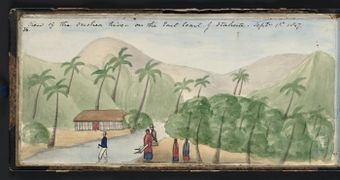 View of the River on the East Coast of Otaheite. Sept. 1st 1849.